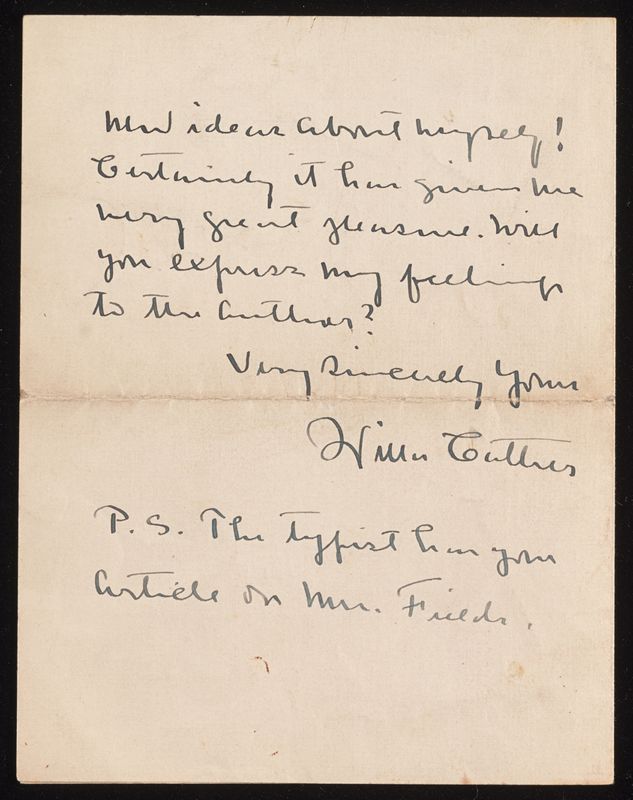 new ideas about myself!
Certainly it has given me
very great pleasure. Will
you express my feelings
to the author?
Very Sincerely Yours
Willa Cather
P. S. The typist has your
article on Mrs. Fields.